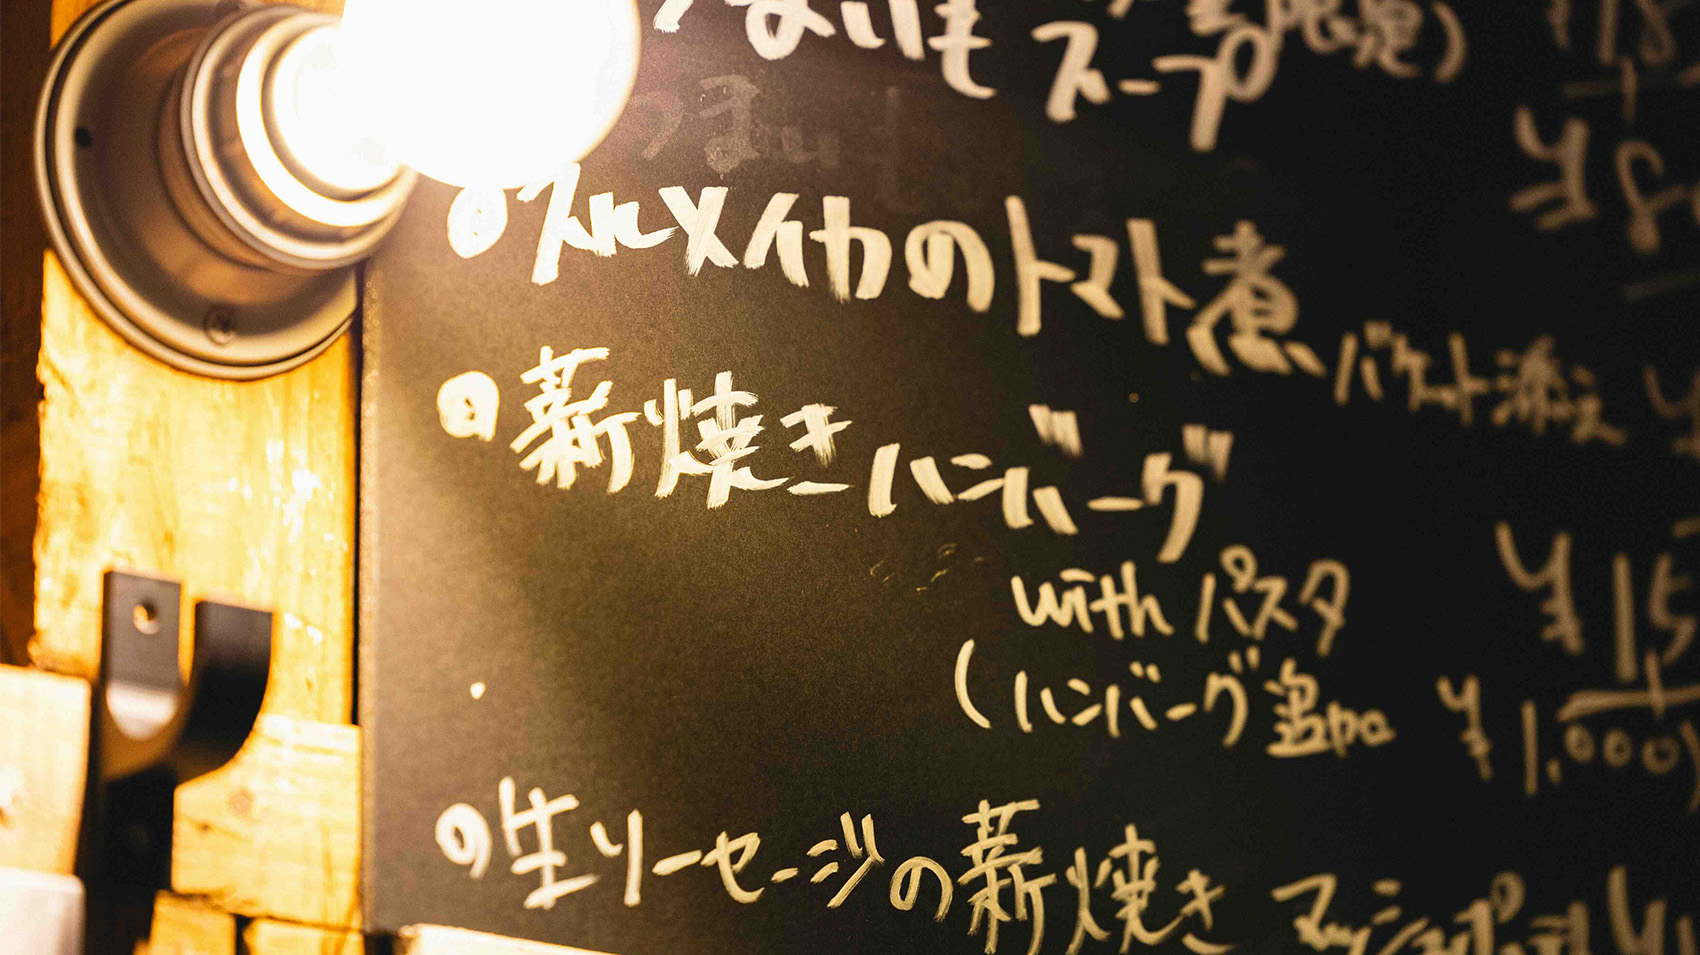 つまいも スープ
スルメイカのトマト煮 バケット添え
薪焼きハンバーグ
with パスタ ¥15
(ハンバーグ追加 ¥1,000)
生ソーセージの薪焼き マッシュポテト